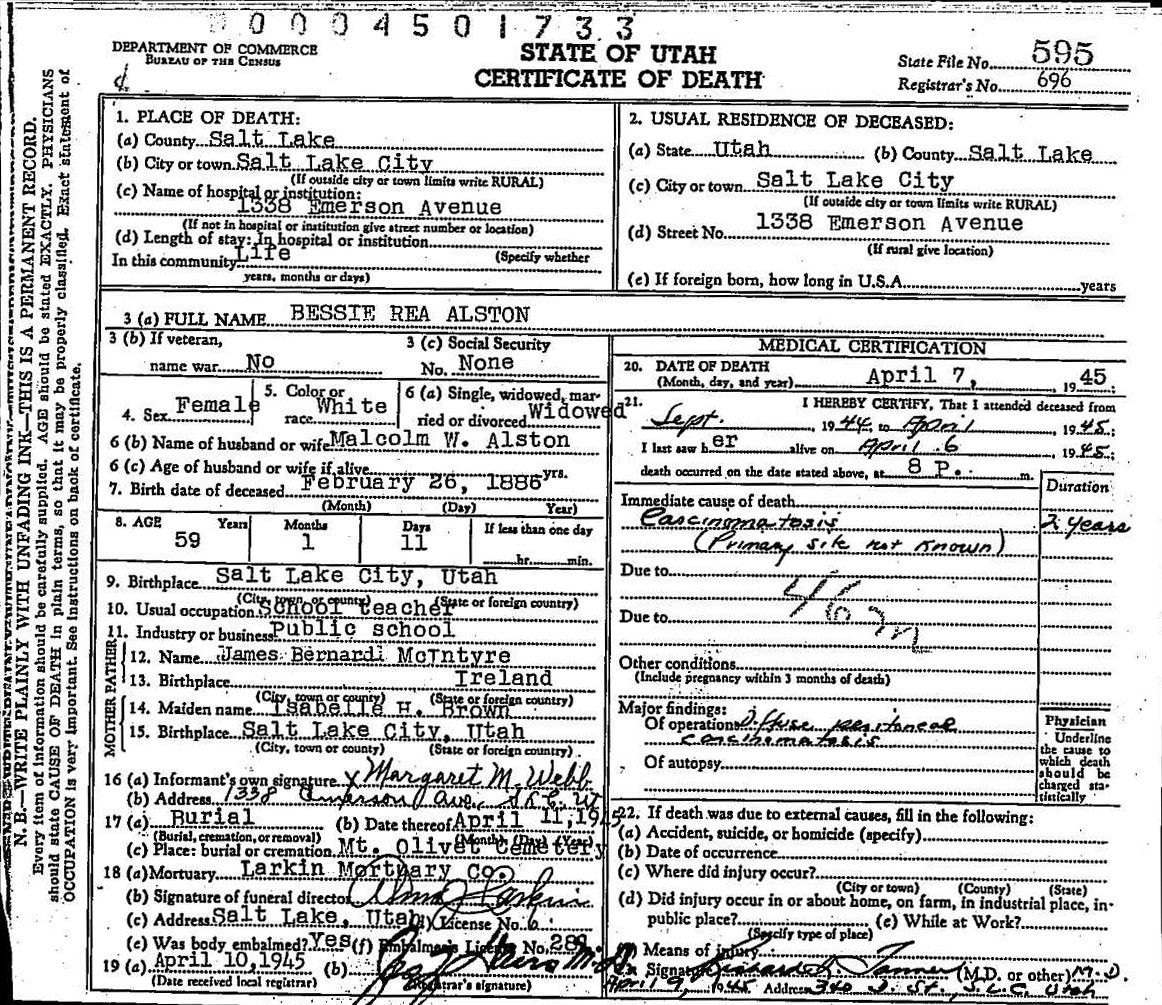 0004501733
DEPARTMENT OF COMMERCE
BUREAU OF THE CENSUS
STATE OF UTAH
CERTIFICATE OF DEATH
State File No. 595
Registrar's No. 696
N. B.—WRITE PLAINLY WITH UNFADING INK—THIS IS A PERMANENT RECORD.
Every item of information should be carefully supplied. AGE should be stated EXACTLY. PHYSICIANS
should state CAUSE OF DEATH in plain terms, so that it may be properly classified. Exact statement of
OCCUPATION is very important. See instructions on back of certificate.
1. PLACE OF DEATH:
(a) County Salt Lake
(b) City or town Salt Lake City
(If outside city or town limits write RURAL)
(c) Name of hospital or institution:
1338 Emerson Avenue
(If not in hospital or institution give street number or location)
(d) Length of stay: In hospital or institution
In this community Life (Specify whether
years, months or days)
2. USUAL RESIDENCE OF DECEASED:
(a) State Utah (b) County Salt Lake
(c) City or town Salt Lake City
(If outside city or town limits write RURAL)
(d) Street No. 1338 Emerson Avenue
(If rural give location)
(e) If foreign born, how long in U.S.A. years
3 (a) FULL NAME BESSIE REA ALSTON
3 (b) If veteran,
name war No
3 (c) Social Security
No. None
4. Sex Female
5. Color or
race White
6 (a) Single, widowed, mar-
ried or divorced Widowed
6 (b) Name of husband or wife Malcolm W. Alston
6 (c) Age of husband or wife if alive yrs.
7. Birth date of deceased February 26, 1886
(Month) (Day) Year)
8. AGE Years Months Days If less than one day
59 1 11 hr. min.
9. Birthplace Salt Lake City, Utah
(City, town, or county) (State or foreign country)
10. Usual occupation School teacher
11. Industry or business Public school
FATHER
12. Name James Bernard McIntyre
13. Birthplace Ireland
(City, town or county) (State or foreign country)
MOTHER
14. Maiden name Isabelle H. Brown
15. Birthplace Salt Lake City, Utah
(City, town or county) (State or foreign country)
16 (a) Informant's own signature x Margaret M. Webb
(b) Address 1338 Emerson Ave, S.L.C. Ut
17 (a) Burial (b) Date thereof April 11, 1945
(Burial, cremation, or removal) (Month) (Day) (Year)
(c) Place: burial or cremation Mt. Olivet Cemetery
18 (a) Mortuary Larkin Mortuary Co.
(b) Signature of funeral director Alma Larkin
(c) Address Salt Lake, Utah (d) License No. 6
(e) Was body embalmed? Yes (f) Embalmer's License No. 289
19 (a) April 10, 1945 (b)
(Date received local registrar) Registrar's signature)
MEDICAL CERTIFICATION
20. DATE OF DEATH
(Month, day, and year) April 7, 1945
21. I HEREBY CERTIFY, That I attended deceased from
Sept. , 1944, to April , 1945;
I last saw her alive on April 6 , 1945;
death occurred on the date stated above, at 8 P. m.
Duration
Immediate cause of death
Carcinomatosis 2 years
(Primary site not known)
Due to
Due to
Other conditions
(Include pregnancy within 3 months of death)
Major findings:
Of operations Diffuse peritoneal
carcinomatosis
Of autopsy
Physician
Underline
the cause to
which death
should be
charged sta-
tistically
22. If death was due to external causes, fill in the following:
(a) Accident, suicide, or homicide (specify)
(b) Date of occurrence
(c) Where did injury occur?
(City or town) (County) (State)
(d) Did injury occur in or about home, on farm, in industrial place, in-
public place? (e) While at Work?
(Specify type of place)
Means of injury
Signature (M.D. or other) M.D.
April 9, 1945 Address 340 St., S.L.C. Utah